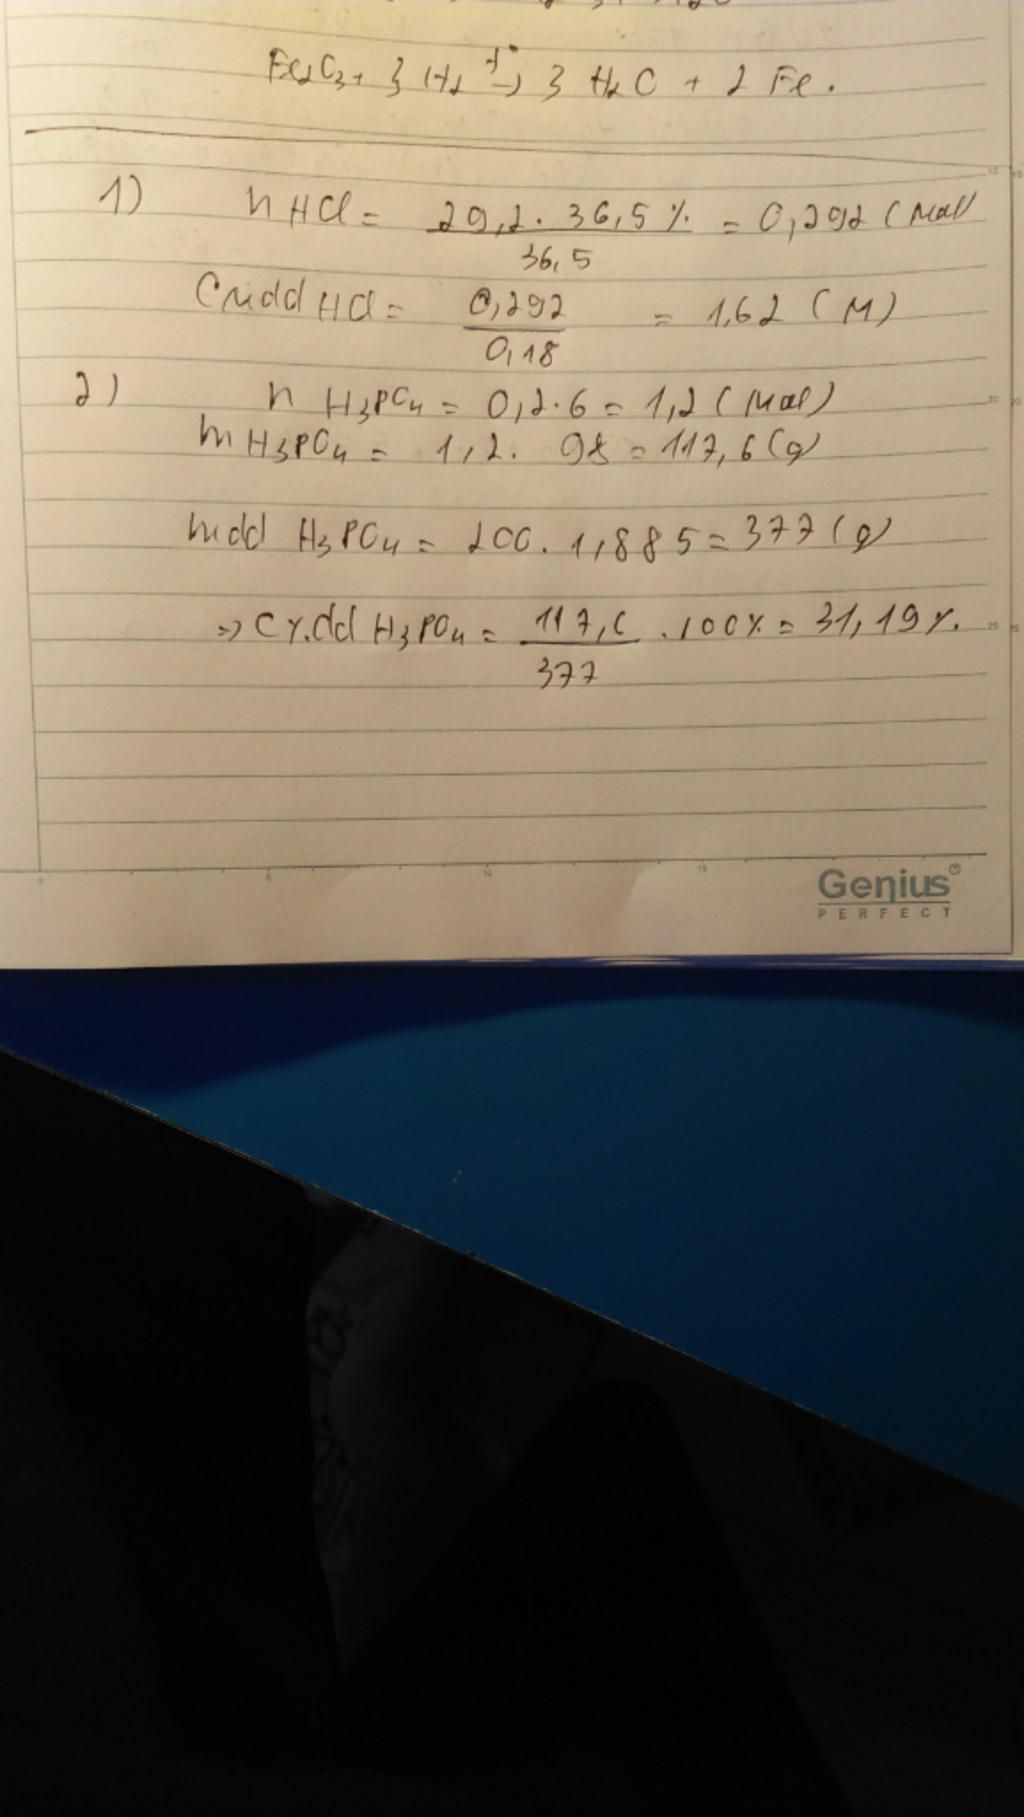 Fe2O3 + 3 H2 t°→ 3 H2O + 2 Fe.
1) n HCl = 29,2 . 36,5 % / 36,5 = 0,292 (mol)
CMdd HCl = 0,292 / 0,18 = 1,62 (M)
2) n H3PO4 = 0,2.6 = 1,2 (mol)
m H3PO4 = 1,2 . 98 = 117,6 (g)
mdd H3PO4 = 200 . 1,885 = 377 (g)
=> C%dd H3PO4 = 117,6 / 377 . 100% = 31,19%.
Genius®
PERFECT